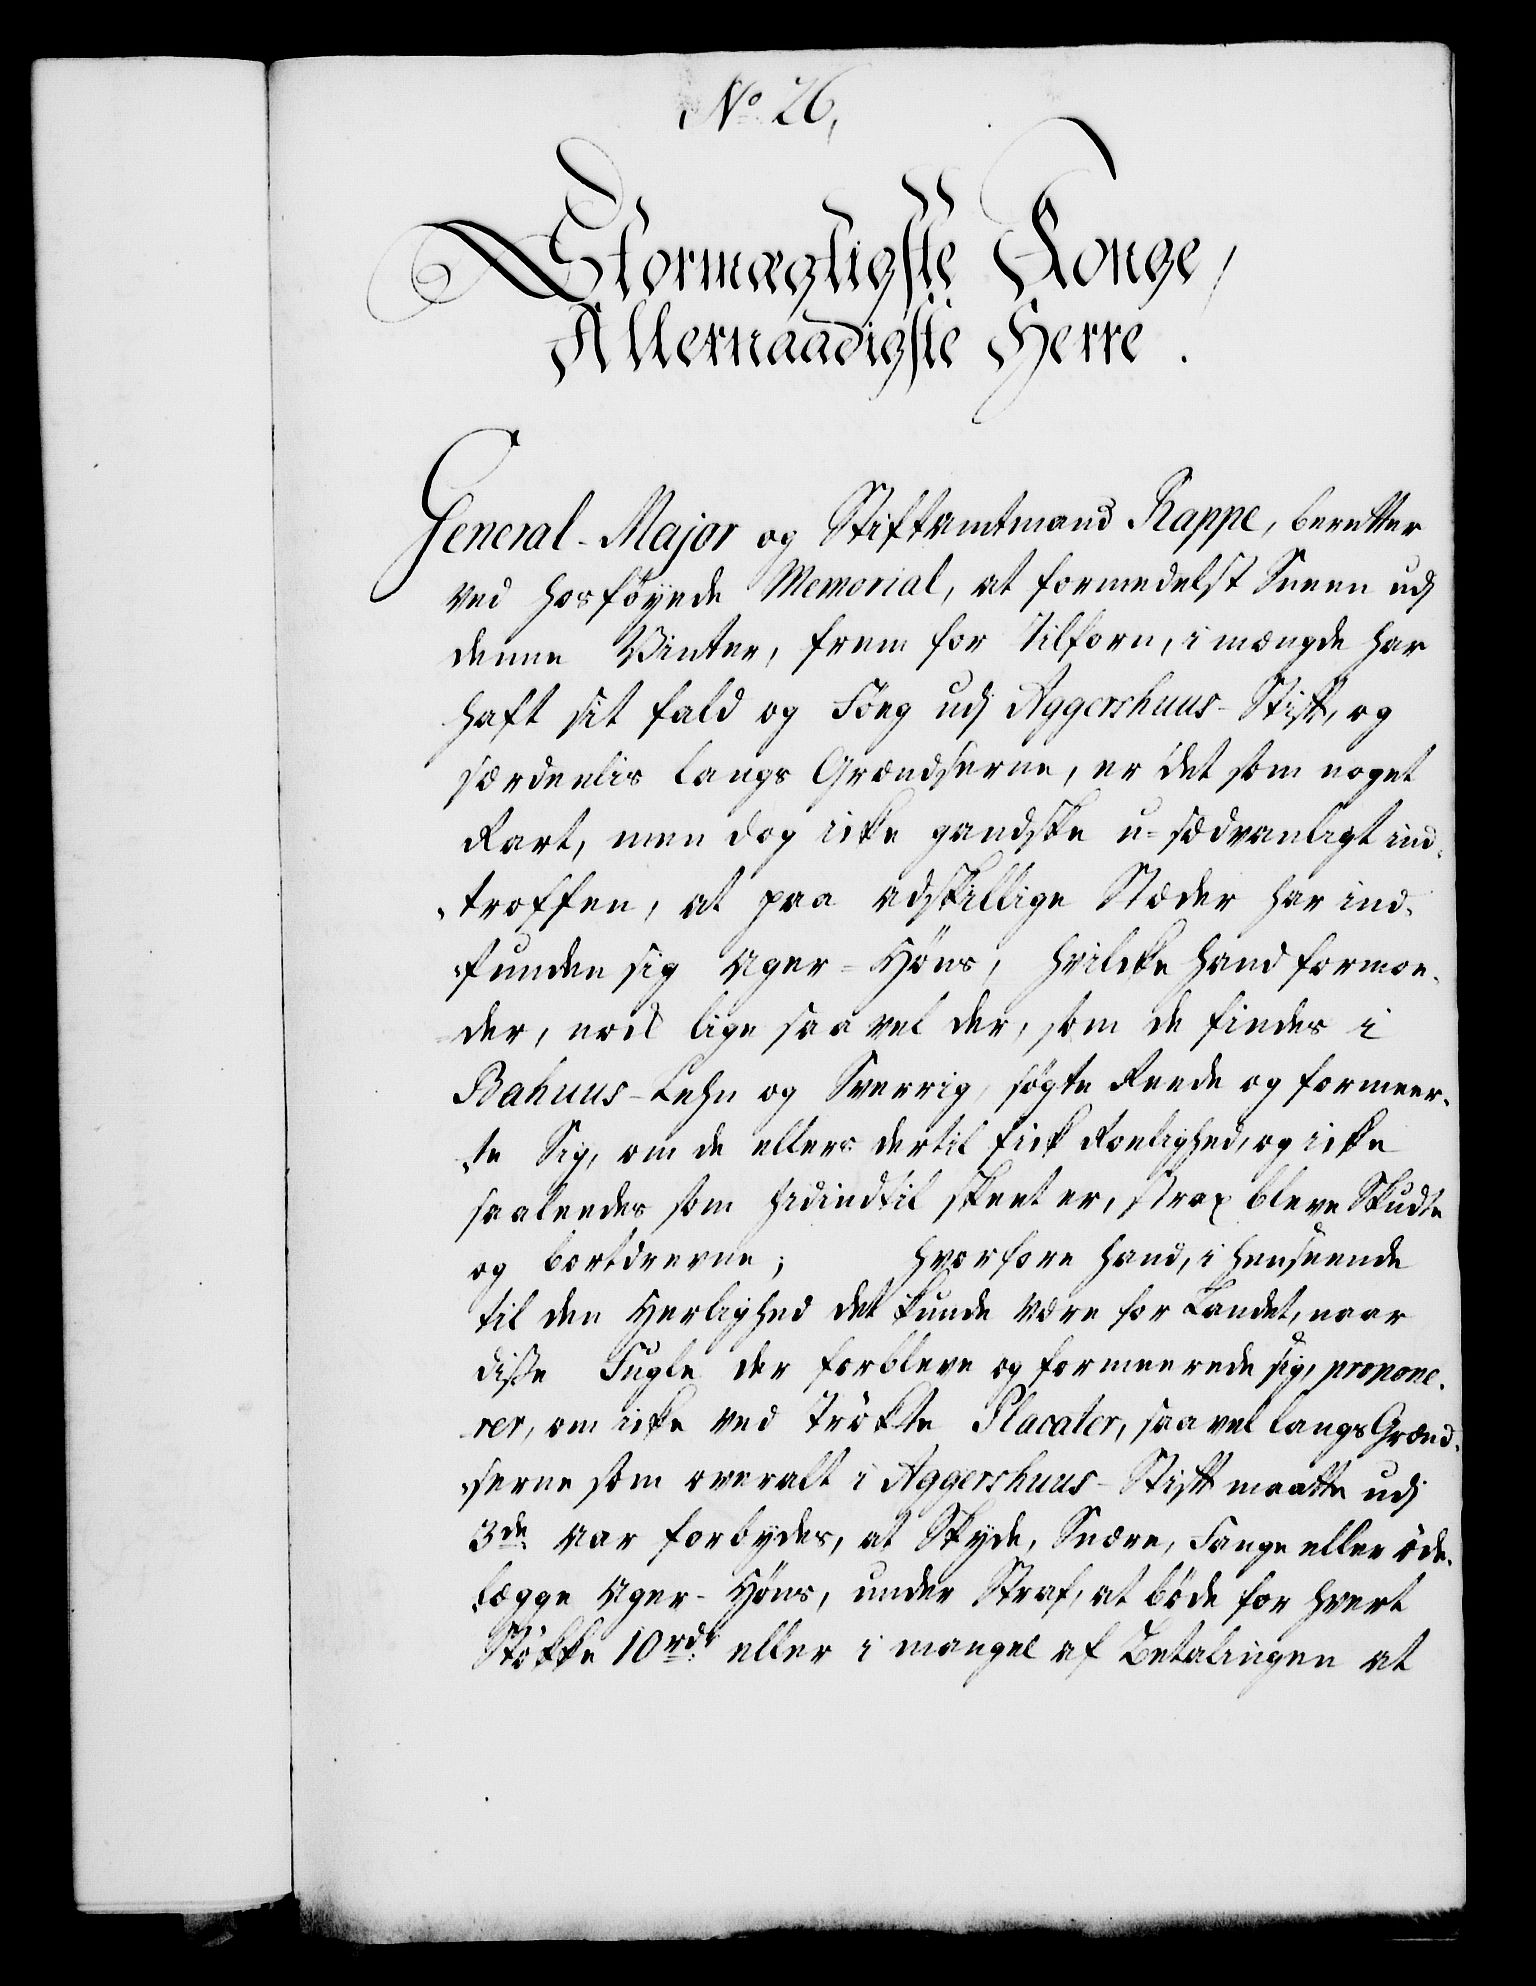 No 26,
Stormægtigste Konge,
Allernaadigste Herre.
General-Major og Stiftamtmand Rappe, beretter
ved hosföyede Memorial, at formedelst Sneen udj
denne Vinter, frem for tilforn, i mængde har
haft sit fald og Fog udj Aggershuus-Stift, og
særdeelis langs Grændserne, er det som noget
Rart, men dog icke gandske u-sædvanligt ind-
-troffen, at paa adskillige Stæder har ind-
-funden sig Ager-Höns, hvilcke hand formoe-
-der, nock lige saa vel der, som de findes i
Bahuus-Lehn og Sverrig, sögte Reede og formeer-
-te Sig, om de ellers dertil fick Roelighed, og icke
saaleedes som hidindtil skeet er, strax bleve Skudte
og bortdrevne; hvorfore hand, i henseende
til den Herlighed det kunde være for Landet, naar
disse Fugle der forbleve og formeerede sig, propone-
-rer, om icke ved trökte Placater, saa vel langs Grænd-
-serne som overalt i Aggershuus-Stift maatte udj
3de Aar forbydes, at Skyde, Snære, Fange eller öde-
-lægge Ager-Höns, under Straf, at böde for hvert
Stökke 10 rdr eller i mangel af Betalingen at